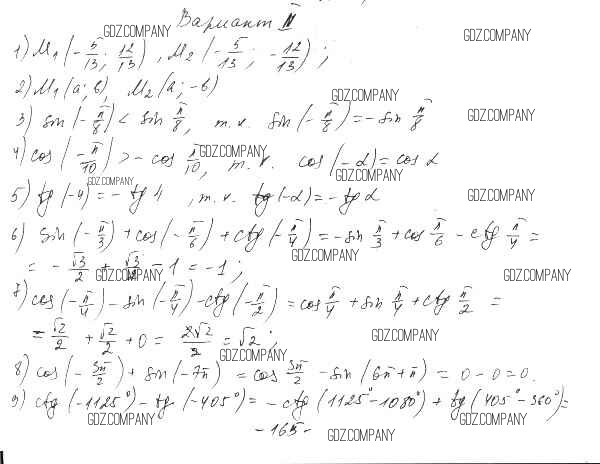 Вариант II
GDZ.COMPANY
1) M₁(-5/13; 12/13), M₂(-5/13; -12/13);
2) M₁(a; b), M₂(a; -b)
GDZ.COMPANY
3) sin(-π/8) < sin π/8, т.к. sin(-π/8) = -sin π/8
GDZ.COMPANY
4) cos(-π/10) > -cos π/10, т.к. cos(-α) = cos α
GDZ.COMPANY
GDZ.COMPANY
GDZ.COMPANY
5) tg(-4) = -tg 4, т.к. tg(-α) = -tg α
GDZ.COMPANY
6) sin(-π/3) + cos(-π/6) + ctg(-π/4) = -sin π/3 + cos π/6 - ctg π/4 =
GDZ.COMPANY
= -√3/2 + √3/2 - 1 = -1;
GDZ.COMPANY
GDZ.COMPANY
7) cos(-π/4) - sin(-π/4) - ctg(-π/2) = cos π/4 + sin π/4 + ctg π/2 =
= √2/2 + √2/2 + 0 = 2√2/2 = √2;
GDZ.COMPANY
GDZ.COMPANY
8) cos(-3π/2) + sin(-7π) = cos 3π/2 - sin(6π+π) = 0 - 0 = 0.
9) ctg(-1125°) - tg(-405°) = -ctg(1125°-1080°) + tg(405°-360°) =
GDZ.COMPANY
GDZ.COMPANY
-165-
GDZ.COMPANY